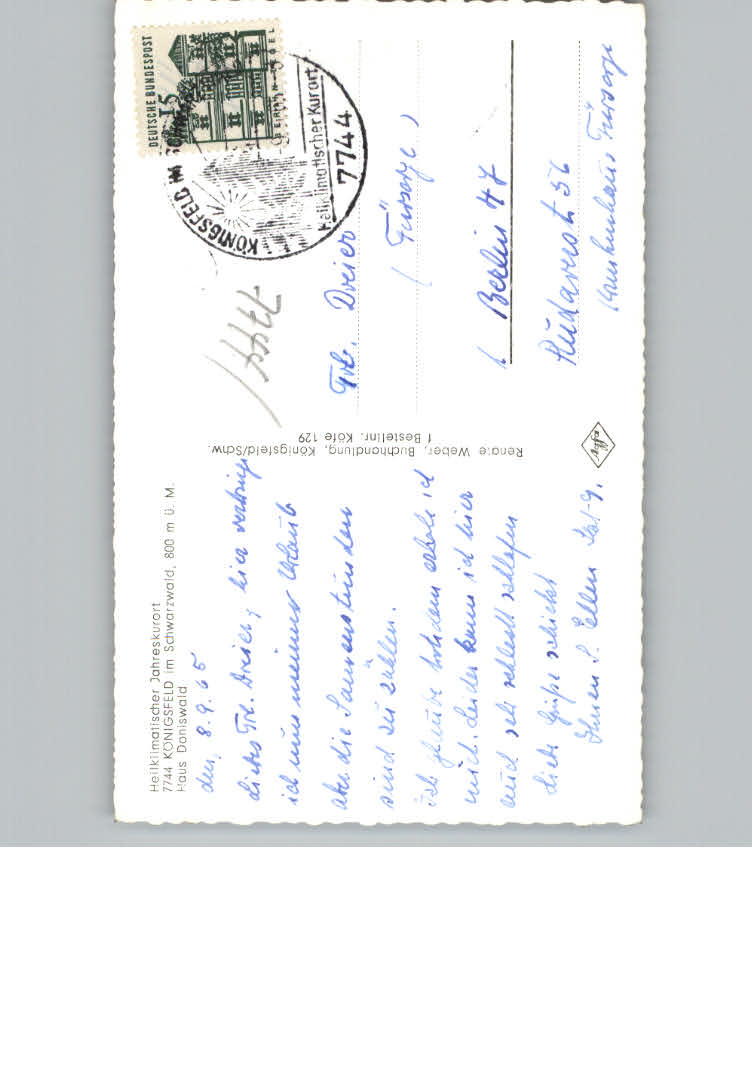 Heilklimatischer Jahreskurort
7744 KÖNIGSFELD im Schwarzwald, 800 m ü. M.
Haus Doniswald
den, 8.9.65
Liebes Frl. Dreier, hier verbringe
ich nun meinen Urlaub
aber die Sonnenstunden
sind zu zählen.
Ich glaube trotzdem erhole ich
mich. Leider kann ich hier
auch sehr schlecht schlafen
Liebe Grüße schickt
Ihnen S. Ellen
Renate Weber, Buchhandlung, Königsfeld/Schw.
f Bestellnr. Köfe 129
DEUTSCHE BUNDESPOST
15
BERLIN TEGEL
KÖNIGSFELD IM SCHWARZWALD
Heilklimatischer Kurort
7744
Frl. Dreier
(Fürsorge)
Berlin 47
Rudowerst 56
Krankenhaus Fürsorge